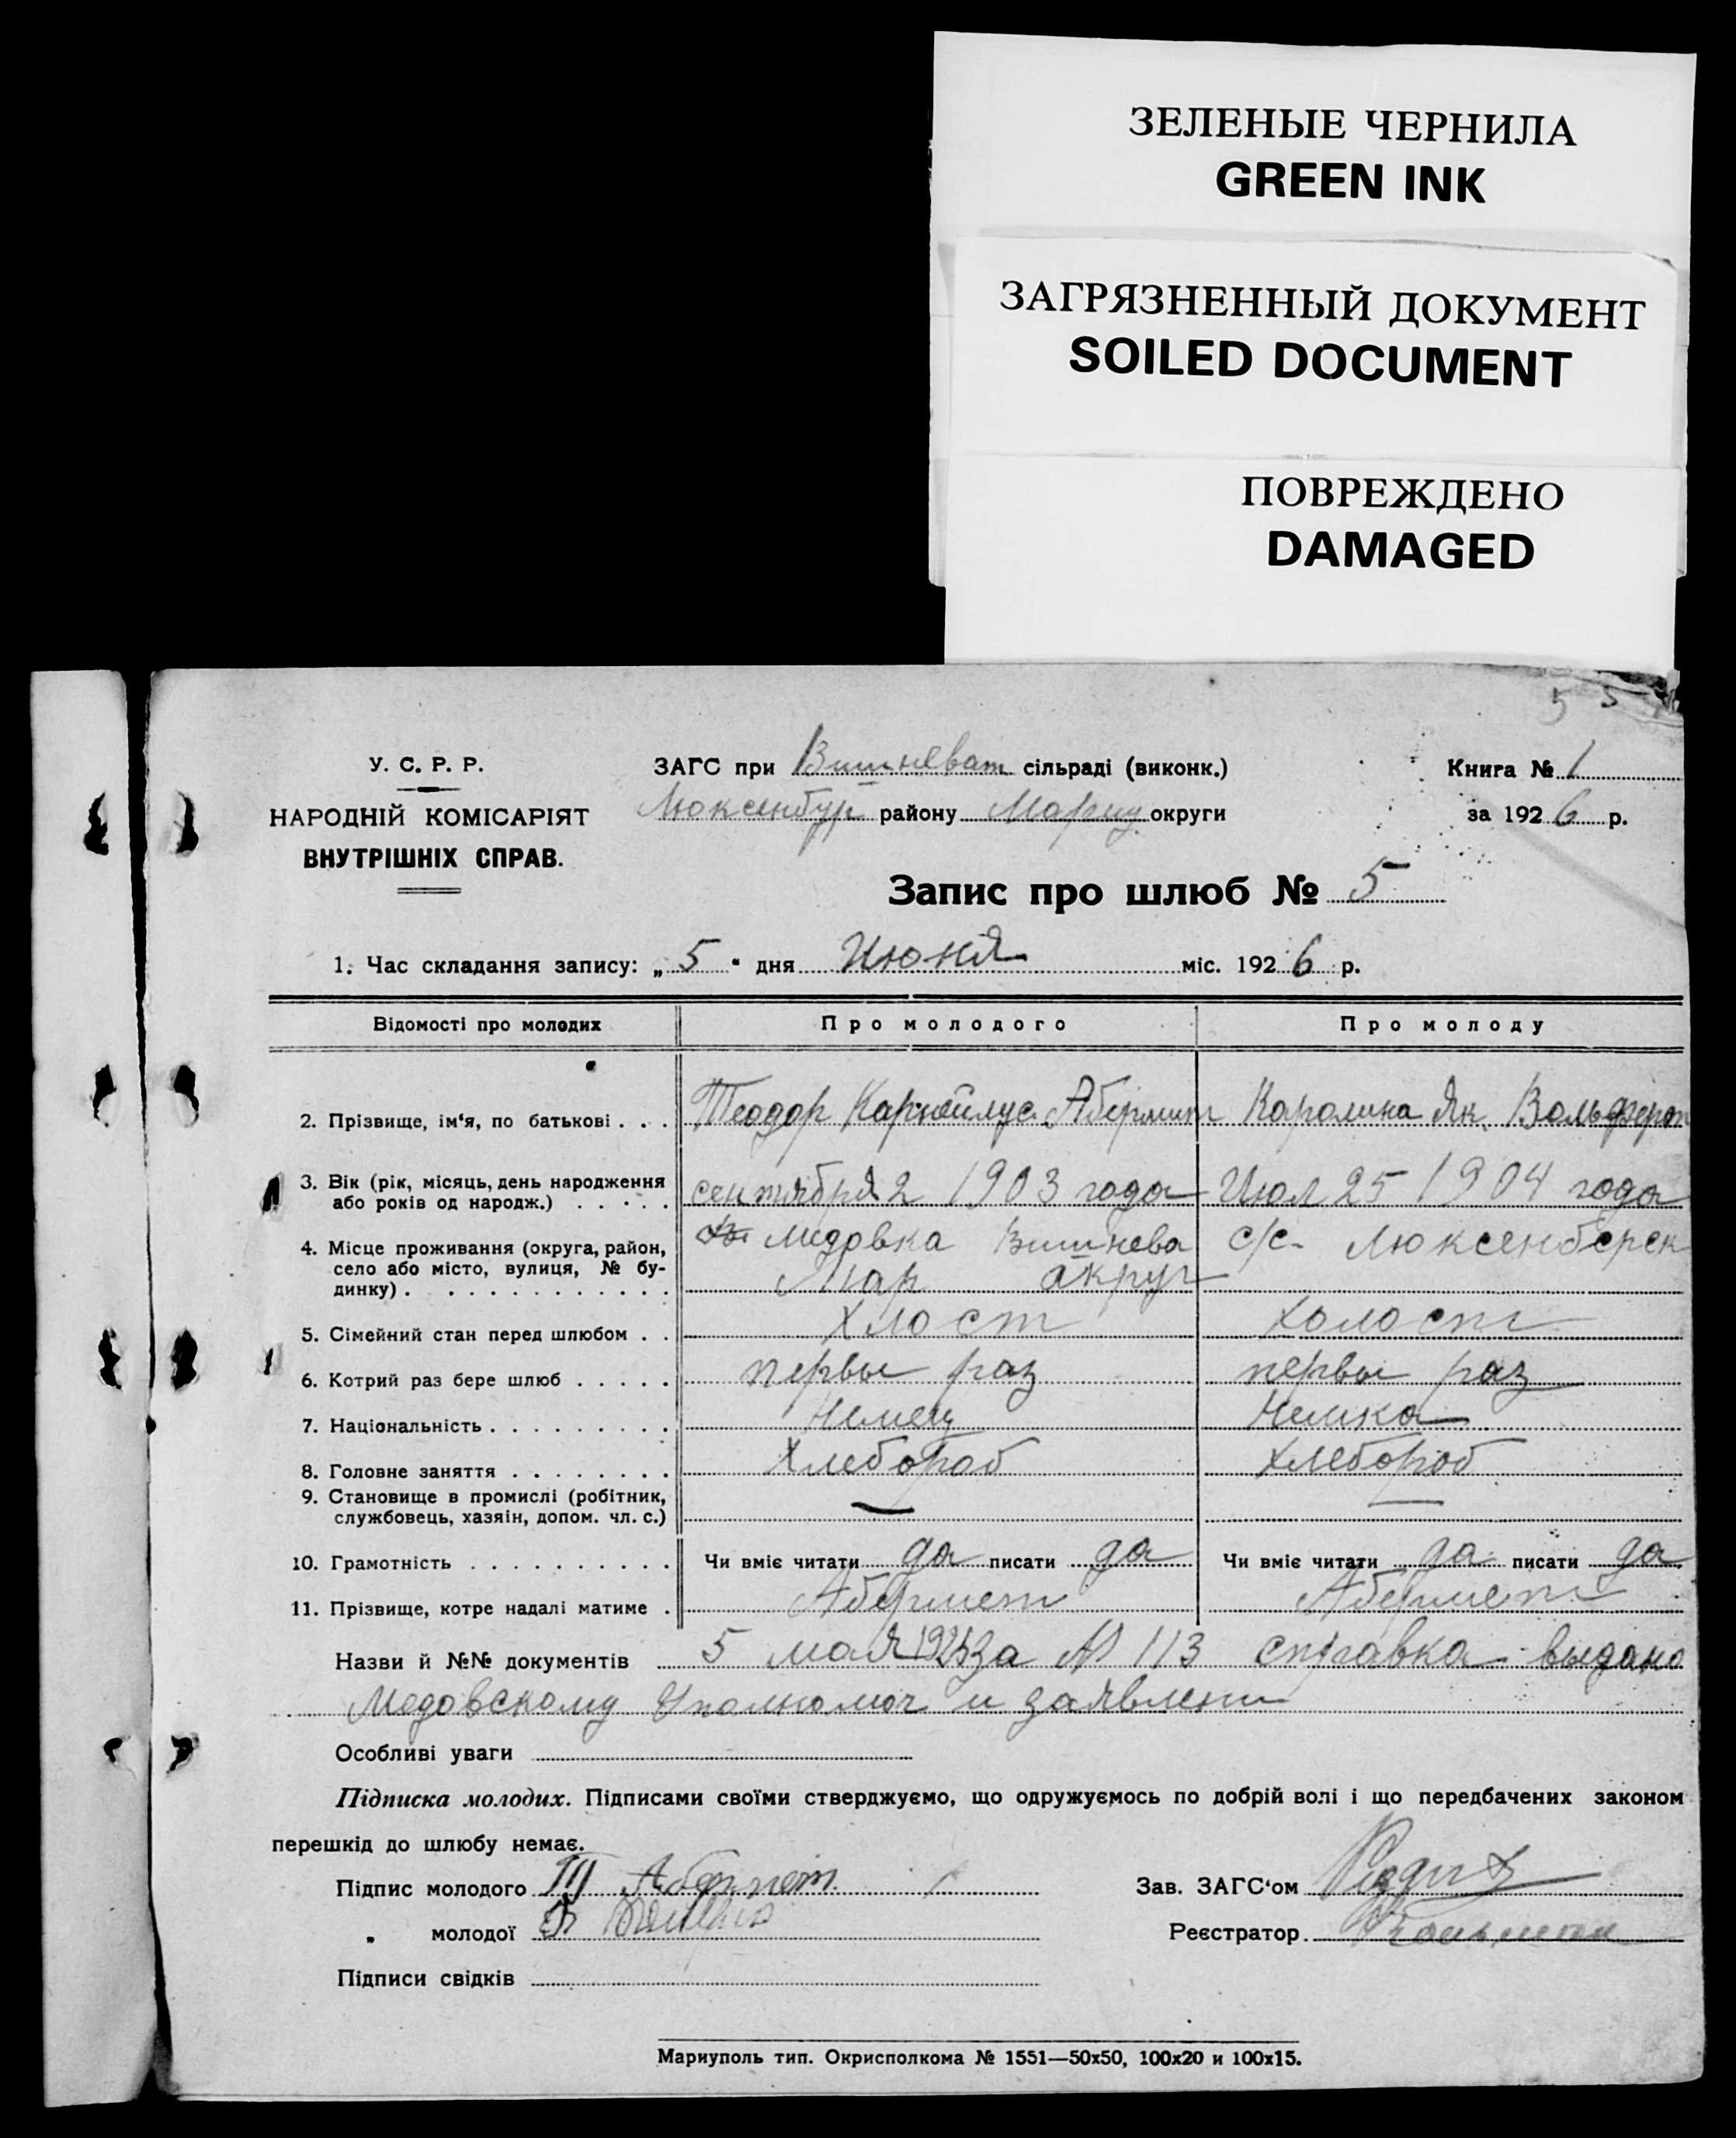 ЗЕЛЕНЫЕ ЧЕРНИЛА
GREEN INK
ЗАГРЯЗНЕННЫЙ ДОКУМЕНТ
SOILED DOCUMENT
ПОВРЕЖДЕНО
DAMAGED
5
У. С. Р. Р.
НАРОДНІЙ КОМІСАРІЯТ
ВНУТРІШНІХ СПРАВ.
ЗАГС при Вишневат сільраді (виконк.)
Люксенбур району Мариу округи
Книга № 1
за 1926 р.
Запис про шлюб № 5
1. Час складання запису: „5“ дня Июня міс. 1926 р.
Відомості про молодих Про молодого Про молоду
2. Прізвище, ім‘я, по батькові . . . Теодор Карнейлус Абермит Каролина Як. Вольф
3. Вік (рік, місяць, день народження або років од народж.) . . . . . сентября 2 1903 года Июл 25 1904 года
4. Місце проживання (округа, район, село або місто, вулиця, № будинку) . . . . . . . . . . . . медовка Вишнева Мар акруг с/с. Люксенберск
5. Сімейний стан перед шлюбом . . Хлост холост
6. Котрий раз бере шлюб . . . . . первы раз первы раз
7. Національність . . . . . . . . . Немец Немка
8. Головне заняття . . . . . . . . Хлебороб хлебороб
9. Становище в промислі (робітник, службовець, хазяін, допом. чл. с.) — —
10. Грамотність . . . . . . . . . . Чи вміє читати да писати да Чи вміє читати да писати да
11. Прізвище, котре надалі матиме . Абермет Абермет
Назви й №№ документів 5 мая за № 113 справка выдано
Медовскому Уполномоч и заявлени
Особливі уваги
Підписка молодих. Підписами своїми стверджуємо, що одружуємось по добрій волі і що передбачених законом
перешкід до шлюбу немає.
Підпис молодого Абермет
„ молодої
Зав. ЗАГС‘ом
Реєстратор.
Підписи свідків
Мариуполь тип. Окрисполкома № 1551—50х50, 100х20 и 100х15.